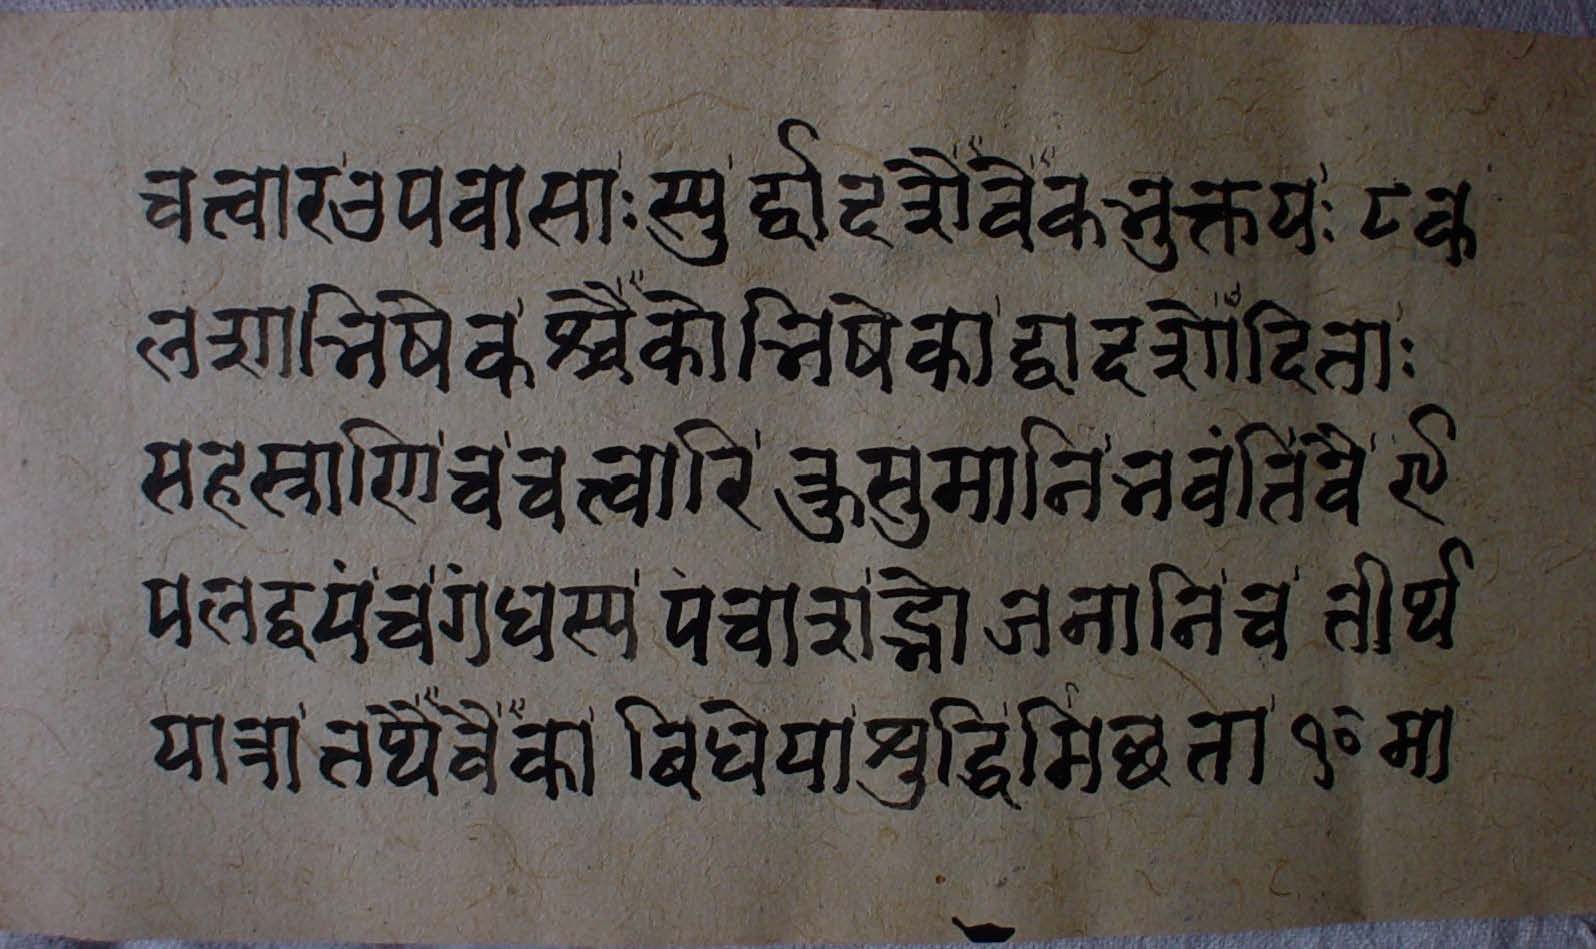 चत्वारउपवासाः स्यु र्द्वादशैवैकभुक्तयः ८ क
लशाभिषेकश्चैकोभिषेका द्वादशोदिताः
सहस्त्राणि च चत्वारि कुसुमानि भवंति वै ९
पलद्वयं च गंधस्य पंचाशद्भोजनानि च तीर्थ
यात्रा तथैवैका विधेया शुद्धिमिछता १० मा